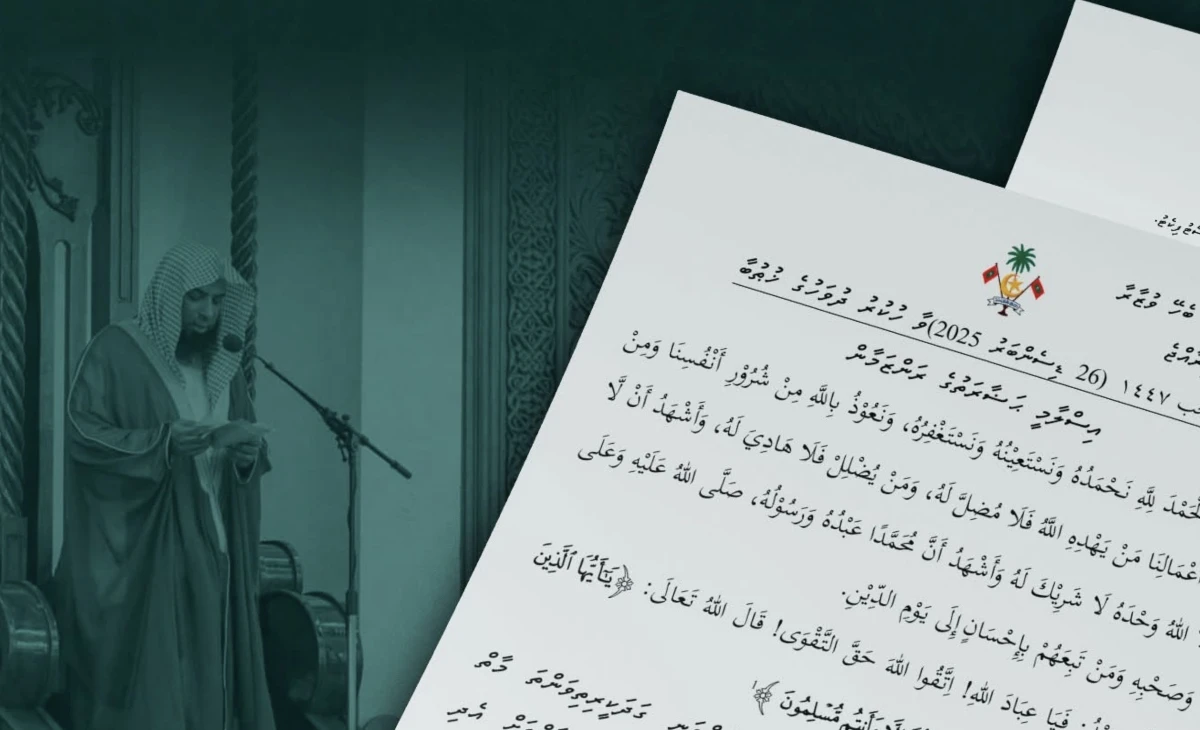 ބެހޭ ވުޒާރާ
١٤٤٧ (26 ޑިސެންބަރު 2025)ވާ ހުކުރު ދުވަހުގެ ޚުޠުބާ
އިސްލާމީ ޙަޟާރަތުގެ ރަންޒަމާން
نَحْمَدُهُ وَنَسْتَعِيْنُهُ وَنَسْتَغْفِرُهُ، وَنَعُوْذُ بِاللَّهِ مِنْ شُرُوْرِ أَنْفُسِنَا وَمِنْ
أَعْمَالِنَا مَنْ يَهْدِهِ اللَّهُ فَلَا مُضِلَّ لَهُ، وَمَنْ يُضْلِلْ فَلَا هَادِيَ لَهُ، وَأَشْهَدُ أَنْ لَّا
اللهُ وَحْدَهُ لَا شَرِيْكَ لَهُ وَأَشْهَدُ أَنَّ مُحَمَّدًا عَبْدُهُ وَرَسُوْلُهُ، صَلَّى اللهُ عَلَيْهِ وَعَلَى
وَصَحْبِهِ وَمَنْ تَبِعَهُمْ بِإِحْسَانٍ إِلَى يَوْمِ الدِّيْنِ.
فَيَا عِبَادَ اللهِ! اِتَّقُوا اللهَ حَقَّ التَّقْوَى! قَالَ اللهُ تَعَالَى: ﴿يَـٰٓأَيُّهَا ٱلَّذِينَ
وَأَنتُم مُّسْلِمُونَ ﴾١
ގަދަކީރިތިވަންތަ މާތް
އެދި